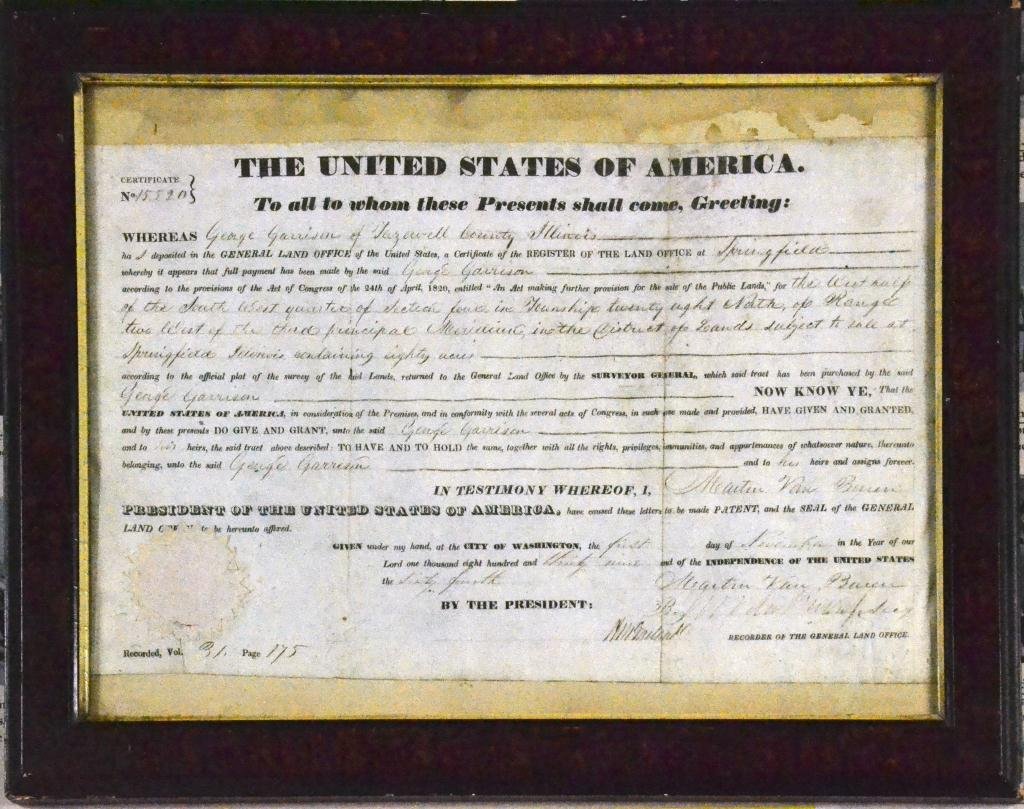 THE UNITED STATES OF AMERICA.
CERTIFICATE
No
To all to whom these Presents shall come, Greeting:
WHEREAS George Garrison of Tazewell County Illinois
ha s deposited in the GENERAL LAND OFFICE of the United States, a Certificate of the REGISTER OF THE LAND OFFICE at Springfield
whereby it appears that full payment has been made by the said George Garrison
according to the provisions of the Act of Congress of the 24th of April, 1820, entitled "An Act making further provision for the sale of the Public Lands," for the West half
of the South West quarter of Section four in Township twenty eight North, of Range
two West of the third principal Meridian, in the District of Lands subject to sale at
Springfield Illinois containing eighty acres
according to the official plat of the survey of the said Lands, returned to the General Land Office by the SURVEYOR GENERAL, which said tract has been purchased by the said
George Garrison NOW KNOW YE, That the
UNITED STATES OF AMERICA, in consideration of the Premises, and in conformity with the several acts of Congress, in such case made and provided, HAVE GIVEN AND GRANTED,
and by these presents DO GIVE AND GRANT, unto the said George Garrison
and to his heirs, the said tract above described: TO HAVE AND TO HOLD the same, together with all the rights, privileges, immunities, and appurtenances of whatsoever nature, thereunto
belonging, unto the said George Garrison and to his heirs and assigns forever.
IN TESTIMONY WHEREOF, I, Martin Van Buren
PRESIDENT OF THE UNITED STATES OF AMERICA, have caused these letters to be made PATENT, and the SEAL of the GENERAL
LAND OFFICE to be hereunto affixed.
GIVEN under my hand, at the CITY OF WASHINGTON, the first day of November in the Year of our
Lord one thousand eight hundred and thirty nine and of the INDEPENDENCE OF THE UNITED STATES
the sixty fourth Martin Van Buren
BY THE PRESIDENT: By
RECORDER OF THE GENERAL LAND OFFICE.
Recorded, Vol. 31. Page 175